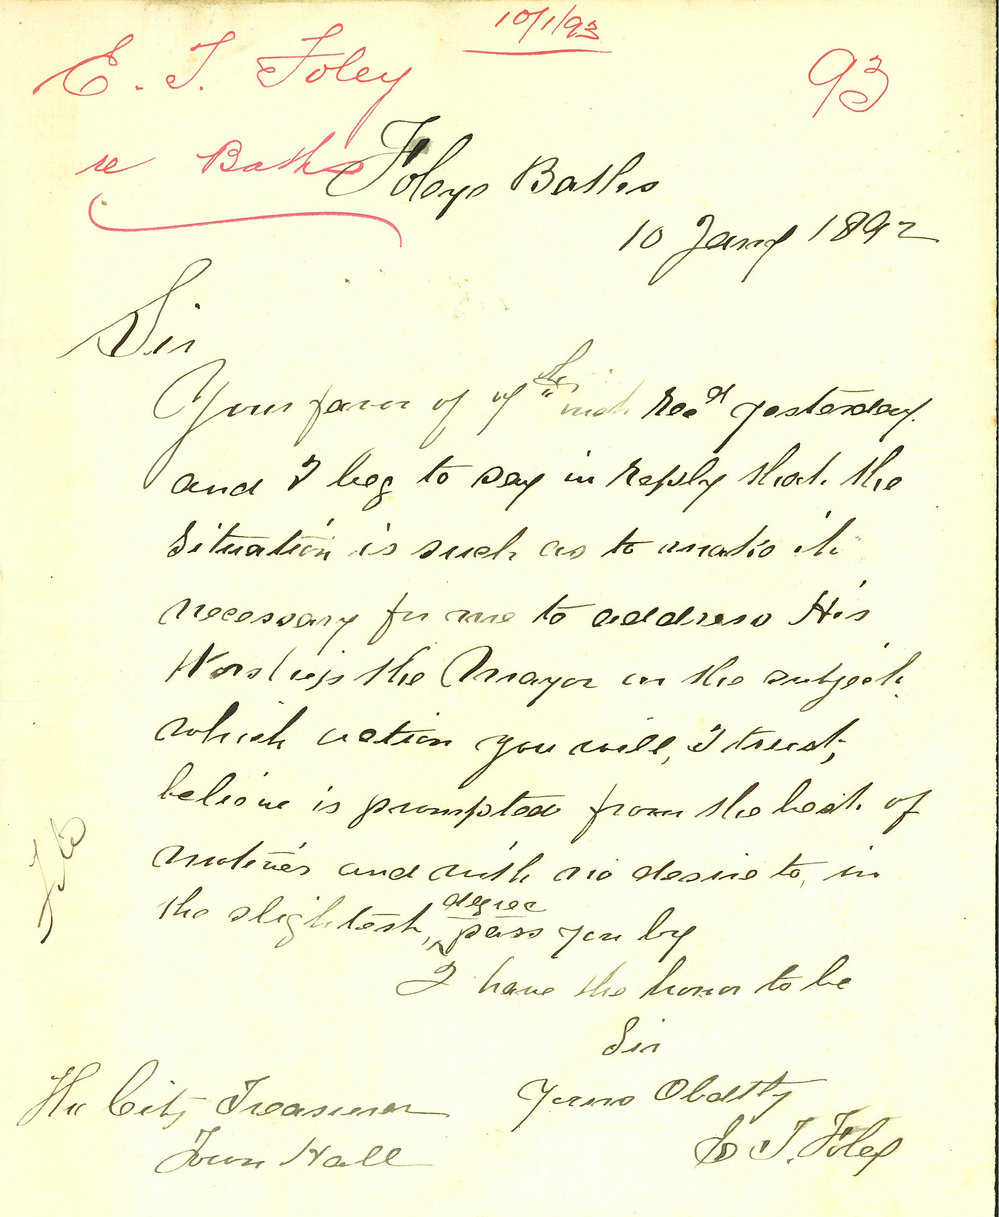 10/1/93
E. T. Foley
93
re Baths
Foleys Baths
10 Jany 1892
Sir
Your favor of 7th inst Recd yesterday
and I beg to say in reply that the
situation is such as to make it
necessary for me to address His
Worship the Mayor on the subject
which action you will, I trust,
believe is prompted from the best of
motives and with no desire to, in
the slightest, degree pass you by
I have the honor to be
Sir
Yours Obdtly
E T. Foley
The City Treasurer
Town Hall